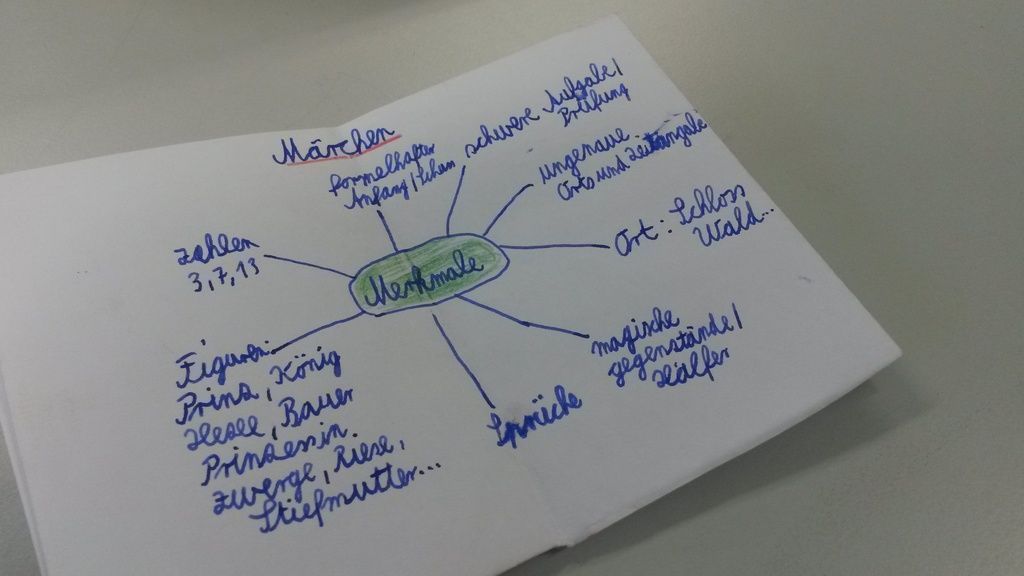 Märchen
formelhafter
Anfang/Schluss
schwere Aufgabe/
Prüfung
ungenaue
Orts und Zeitangabe
Ort: Schloss
Wald...
Zahlen
3,7,13
Merkmale
magische
gegenstände/
Hälfer
Sprüche
Figuren:
Prinz, König
Hexe, Bauer
Prinzessin
Zwerge, Riese,
Stiefmutter...